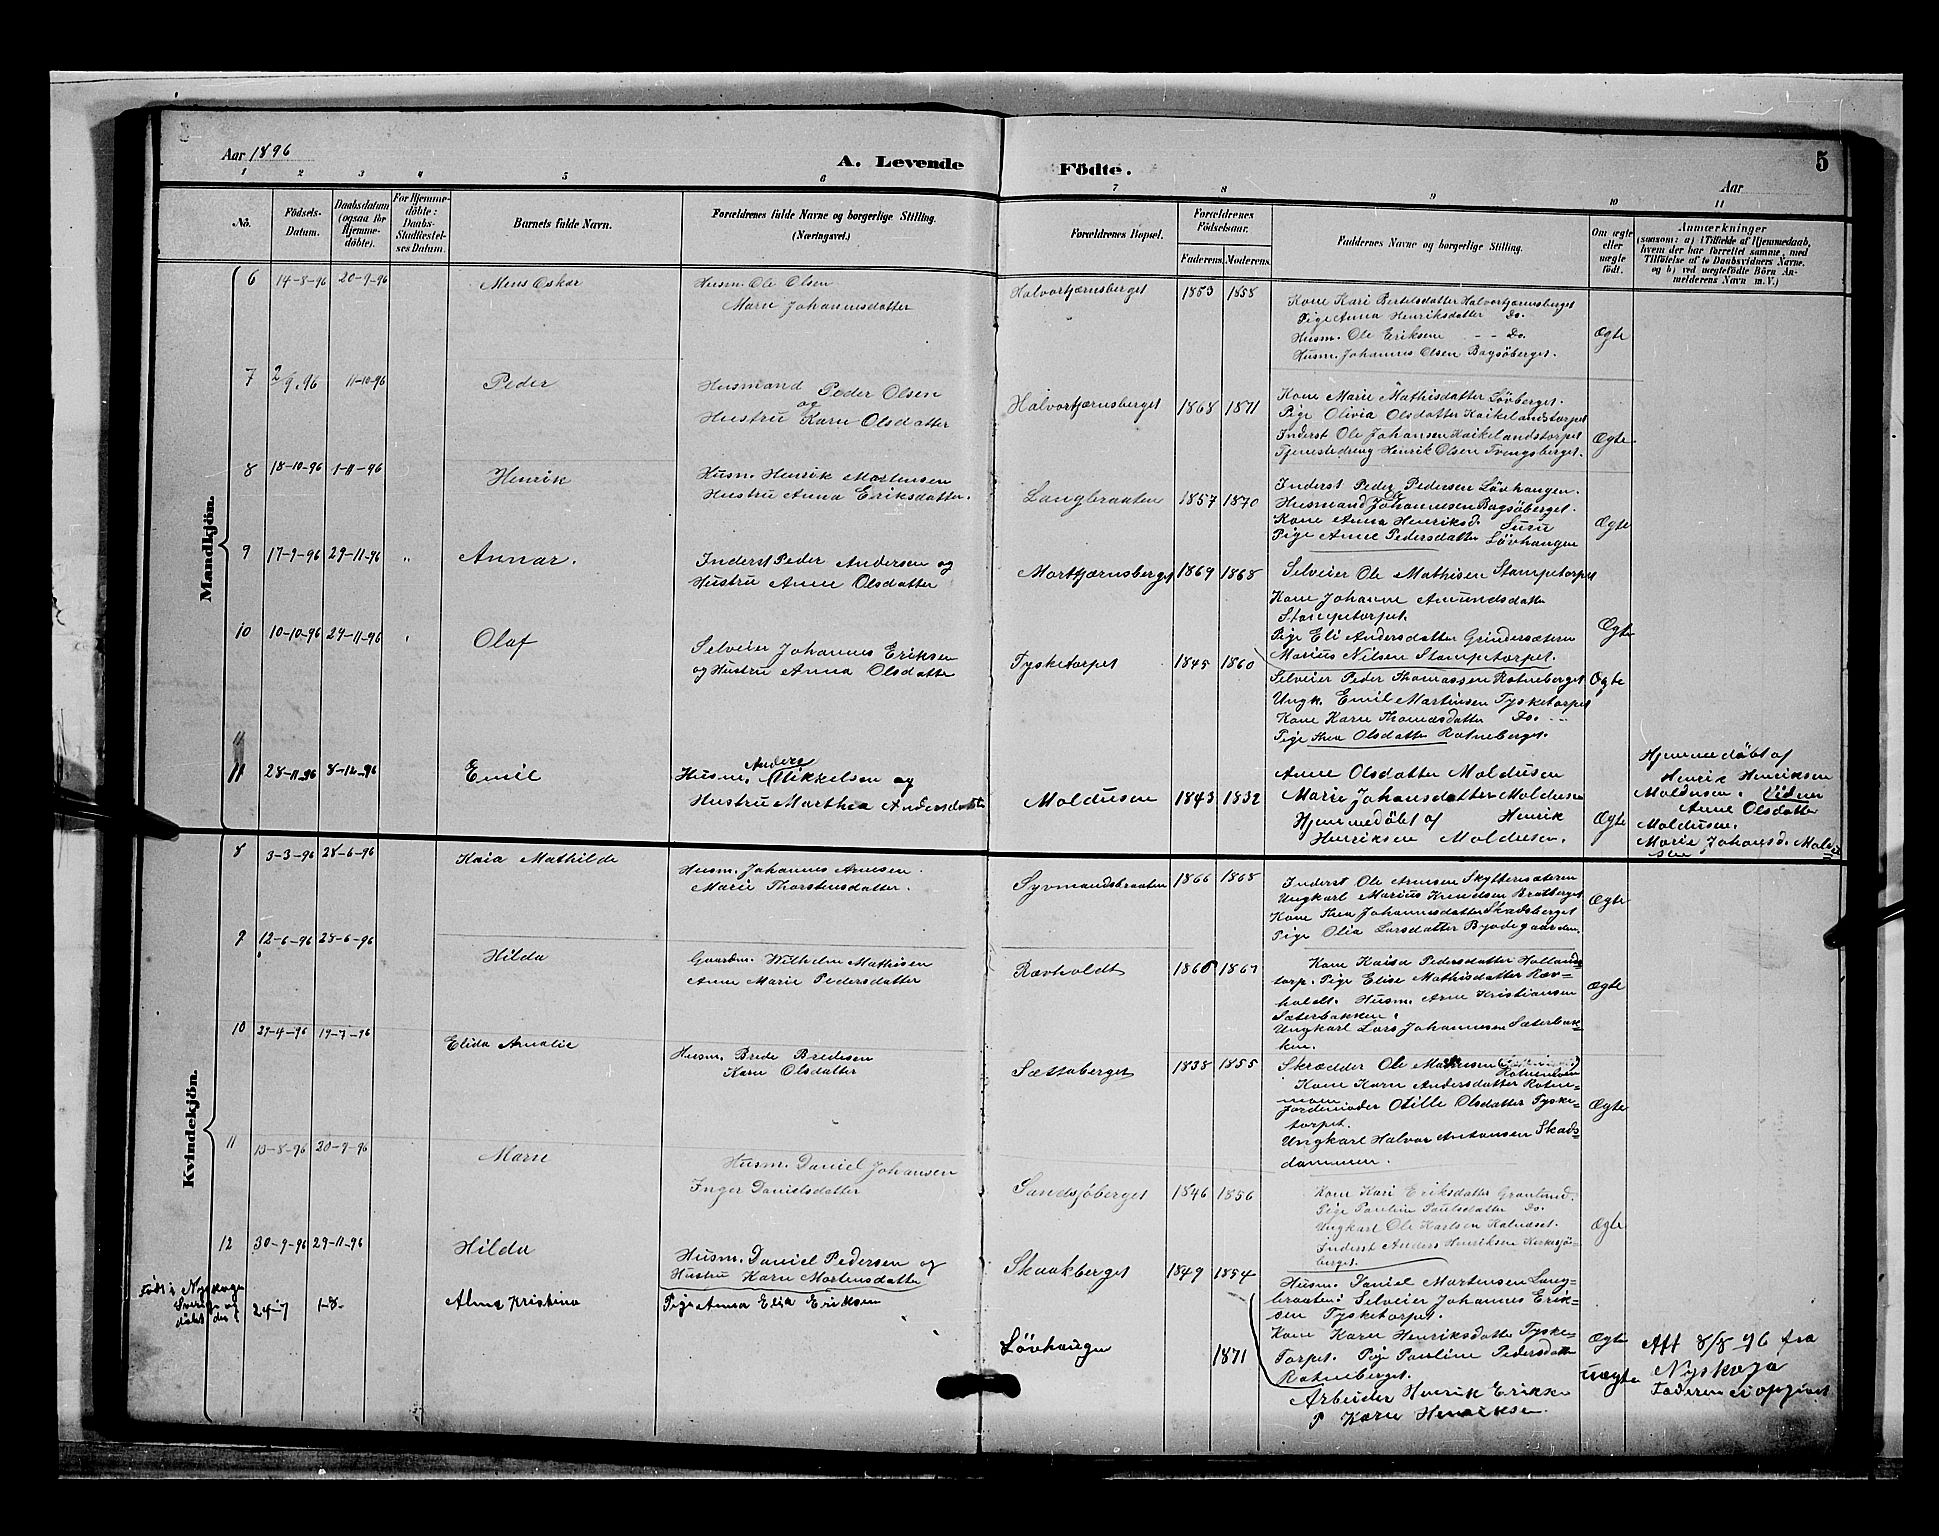 Aar 1896
A. Levende Födte.
5
Aar
1 2 3 4 5 6 7 8 9 10 11
No.
Födsels-Datum.
Daabsdatum (ogsaa for Hjemmedöbte).
For Hjemmedöbte: Daabs-Stadfæstelses Datum.
Barnets fulde Navn.
Forældrenes fulde Navne og borgerlige Stilling. (Næringsvei.)
Forældrenes Bopæl.
Forældrenes Födselsaar.
Faderens. Moderens.
Faddernes Navne og borgerlige Stilling.
Om ægte eller uægte födt.
Anmærkninger
(saasom: a) i Tilfælde af Hjemmedaab,
hvem der har forrettet samme, med
Tilföielse af to Daabsvidners Navne.
og b) ved uægtefödte Börn An-
melderens Navn m.V.)
Mandkjön.
6 14-8-96 20-9-96 Mens Oskar
Husm. Ole Olsen
Marie Johannesdatter
Halvortjernsberget 1853 1858
Kone Kari Bertelsdatter Halvortjernsberget
Pige Anna Henriksdatter Do.
Husm. Ole Eriksen - - Do.
Husm. Johannes Olsen Bagsöberget.
Ægte
7 2/9.96 11-10-96 Peder
Husmand Peder Olsen
og
Hustru Karn Olsdatter
Halvortjernsberget 1868 1871
Kone Marie Mathisdatter Lövberget.
Pige Olivia Olsdatter Kaikelandstorpet
Inderst Ole Johansen Kaikelandstorpet
Tjenestedreng Henrik Olsen Tvengsberget.
Ægte
8 18-10-96 1-11-96 Henrik
Husm. Henrik Mortensen
Hustru Anna Eriksdatter.
Langbraaten 1857 1870
Inderst Peder Pedersen Lövhaugen.
Husmand Johannesen Bagsöberget.
Kone Anna Henriksd. Suru
Pige Anne Pedersdatter Lövhaugen
Ægte
9 17-9-96 29-11-96 " Annar.
Inderst Peder Andersen og
Hustru Anne Olsdatter
Mortjernsberget 1869 1868
Selveier Ole Mathisen Stampetorpet
Kone Johanne Amundsdatter
Stampetorpet.
Pige Eli Andersdatter Grindersæteren
Marius Nilsen Stampetorpet.
Ægte
10 10-10-96 29-11-96 Olaf
Selveier Johannes Eriksen
og Hustru Anna Olsdatter
Tysketorpet 1845 1860
Selveier Peder Thomassen Rotneberget
Ungk. Emil Martinsen Tysketorpet
Kone Karn Thomasdatter Do. --
Pige Thea Olsdatter Rotneberget.
Ægte
11
11 28-11-96 8-12-96 Emil
Anders
Husm. Mikkelsen og
Hustru Marthea Andersdatter
Moldusen 1843 1832
Anne Olsdatter Moldusen
Marie Johansdatter Moldusen
Hjemmedöbt af Henrik
Henriksen Moldusen.
Ægte
Hjemmedöbt af
Henrik Henriksen
Moldusen. Vidner
Anne Olsdatter
Moldusen.
Marie Johansd. Moldu
sen
Kvindekjön.
8 3-3-96 28-6-96 Kaia Mathilde
Husm. Johannes Arnesen.
Marie Thorstensdatter.
Syvmandsbraaten 1866 1868
Inderst Ole Arnesen Skyttersæteren
Ungkarl Marius Knudsen Bratberget
Kone Thea Johannesdatter Skadsberget
Pige Olia Larsdatter Bygdegaarden.
Ægte
9 12-6-96 28-6-96 Hilda
Gaardm. Wilhelm Mathisen
Anne Marie Pedersdatter
Rævholdt 1860 1867
Kone Kaisa Pedersdatter Hollands-
torp. Pige Elise Mathisdatter Ræv-
holdt. Husm. Arne Kristiansen
Sæterbakken.
Ungkarl Lars Johannesen Sæterbak-
ken.
Ægte
10 29-4-96 19-7-96 Elida Amalie
Husm. Brede Bredesen
Karn Olsdatter
Sættaberget 1838 1855
Skrædder Ole Madtesen
Rotnemoen
Kone Karn Andersdatter Rotne-
moen
Jordemoder Otille Olsdatter Tyske-
torpet.
Ungkarl Halvor Antonsen Skads-
dammen.
Ægte
11 13-8-96 20-9-96 Marie
Husm. Daniel Johansen
Inger Danielsdatter
Sandsjöberget 1846 1856
Kone Kari Eriksdatter Granlund.
Pige Pauline Paulsdatter Do.
Ungkarl Ole Karlsen Kalneset.
Inderst Anders Henriksen Kerksjö-
berget.
Ægte
12 30-9-96 29-11-96 Hilda
Husm. Daniel Pedersen og
Hustru Karn Mortensdatter
Skaakberget 1849 1854
Husm. Daniel Mortensen Lang-
braaten. Selveier Johannes Erik-
sen Tysketorpet.
Kone Karn Henriksdatter Tyske-
Torpet. Pige Pauline Pedersdatter
Rotneberget.
Ægte
Födt i Nyskoga
Sverige og
döbt der
24-7 1-8- Alma Kristine
Pige Anna Elia Eriksen
Lövhaugen 1871
Arbeider Henrik Eriksen
P Karn Henriksen.
uægte
Att 8/8-96 fra
Nyskoga
Faderen ei opgivet